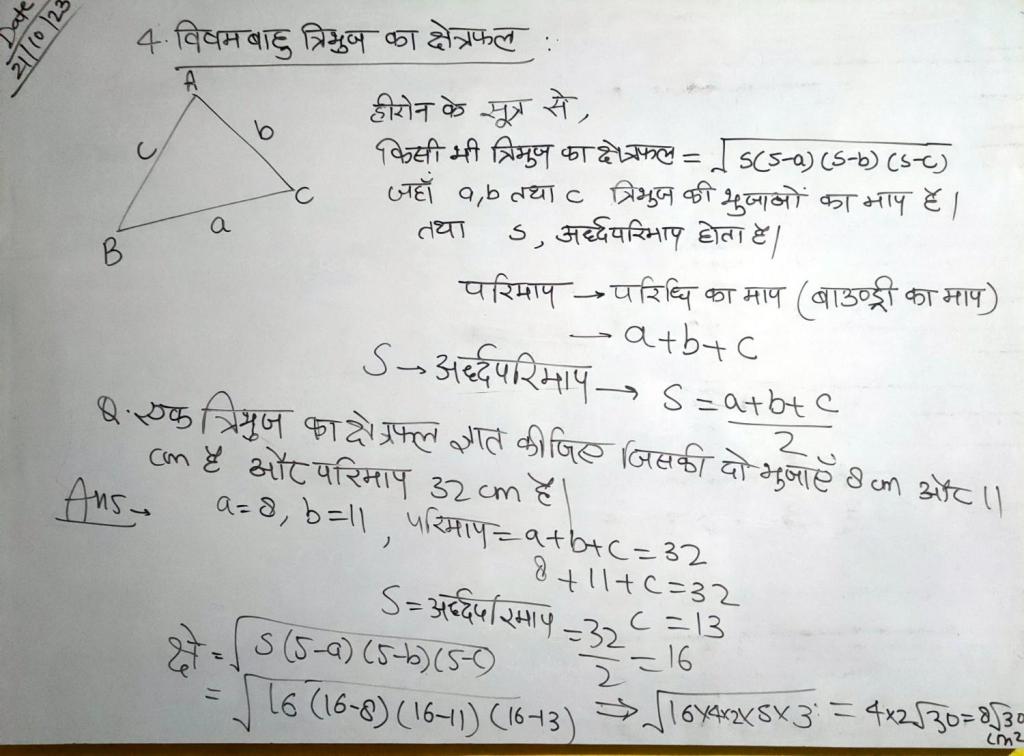 Date
21/10/23
4. विषमबाहु त्रिभुज का क्षेत्रफल :
A
c
b
B
a
C
हीरोन के सूत्र से,
किसी भी त्रिभुज का क्षेत्रफल = √s(s-a)(s-b)(s-c)
जहाँ a,b तथा c त्रिभुज की भुजाओं का माप है।
तथा s, अर्द्धपरिमाप होता है।
परिमाप → परिधि का माप (बाउण्ड्री का माप)
→ a+b+c
S → अर्द्धपरिमाप → S = a+b+c/2
Q. एक त्रिभुज का क्षेत्रफल ज्ञात कीजिए जिसकी दो भुजाएँ 8 cm और 11
cm है और परिमाप 32 cm है।
Ans → a=8, b=11, परिमाप = a+b+c = 32
8+11+c=32
c = 13
S = अर्द्धपरिमाप = 32/2 = 16
क्षे॰ = √s(s-a)(s-b)(s-c)
= √16(16-8)(16-11)(16-13) ⇒ √16×4×2×5×3 = 4×2√30 = 8√30
cm²